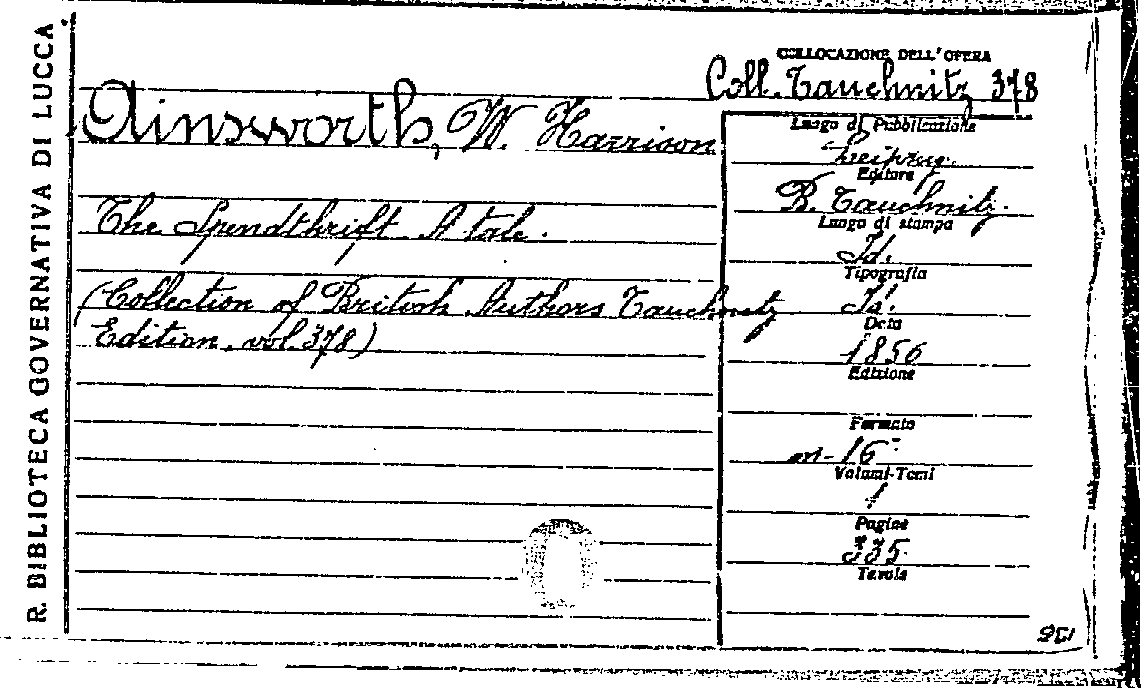 R. BIBLIOTECA GOVERNATIVA DI LUCCA
COLLOCAZIONE DELL'OPERA
Coll. Tauchnitz 378
Ainsworth, W. Harrison
The Spendthrift. A tale.
(Collection of British Authors Tauchnitz
Edition. vol. 378)
Luogo di Pubblicazione
Leipzig.
Editore
B. Tauchnitz.
Luogo di stampa
Id.
Tipografia
Id.
Data
1856
Edizione
Formato
in-16°
Volumi-Tomi
1
Pagine
335.
Tavole